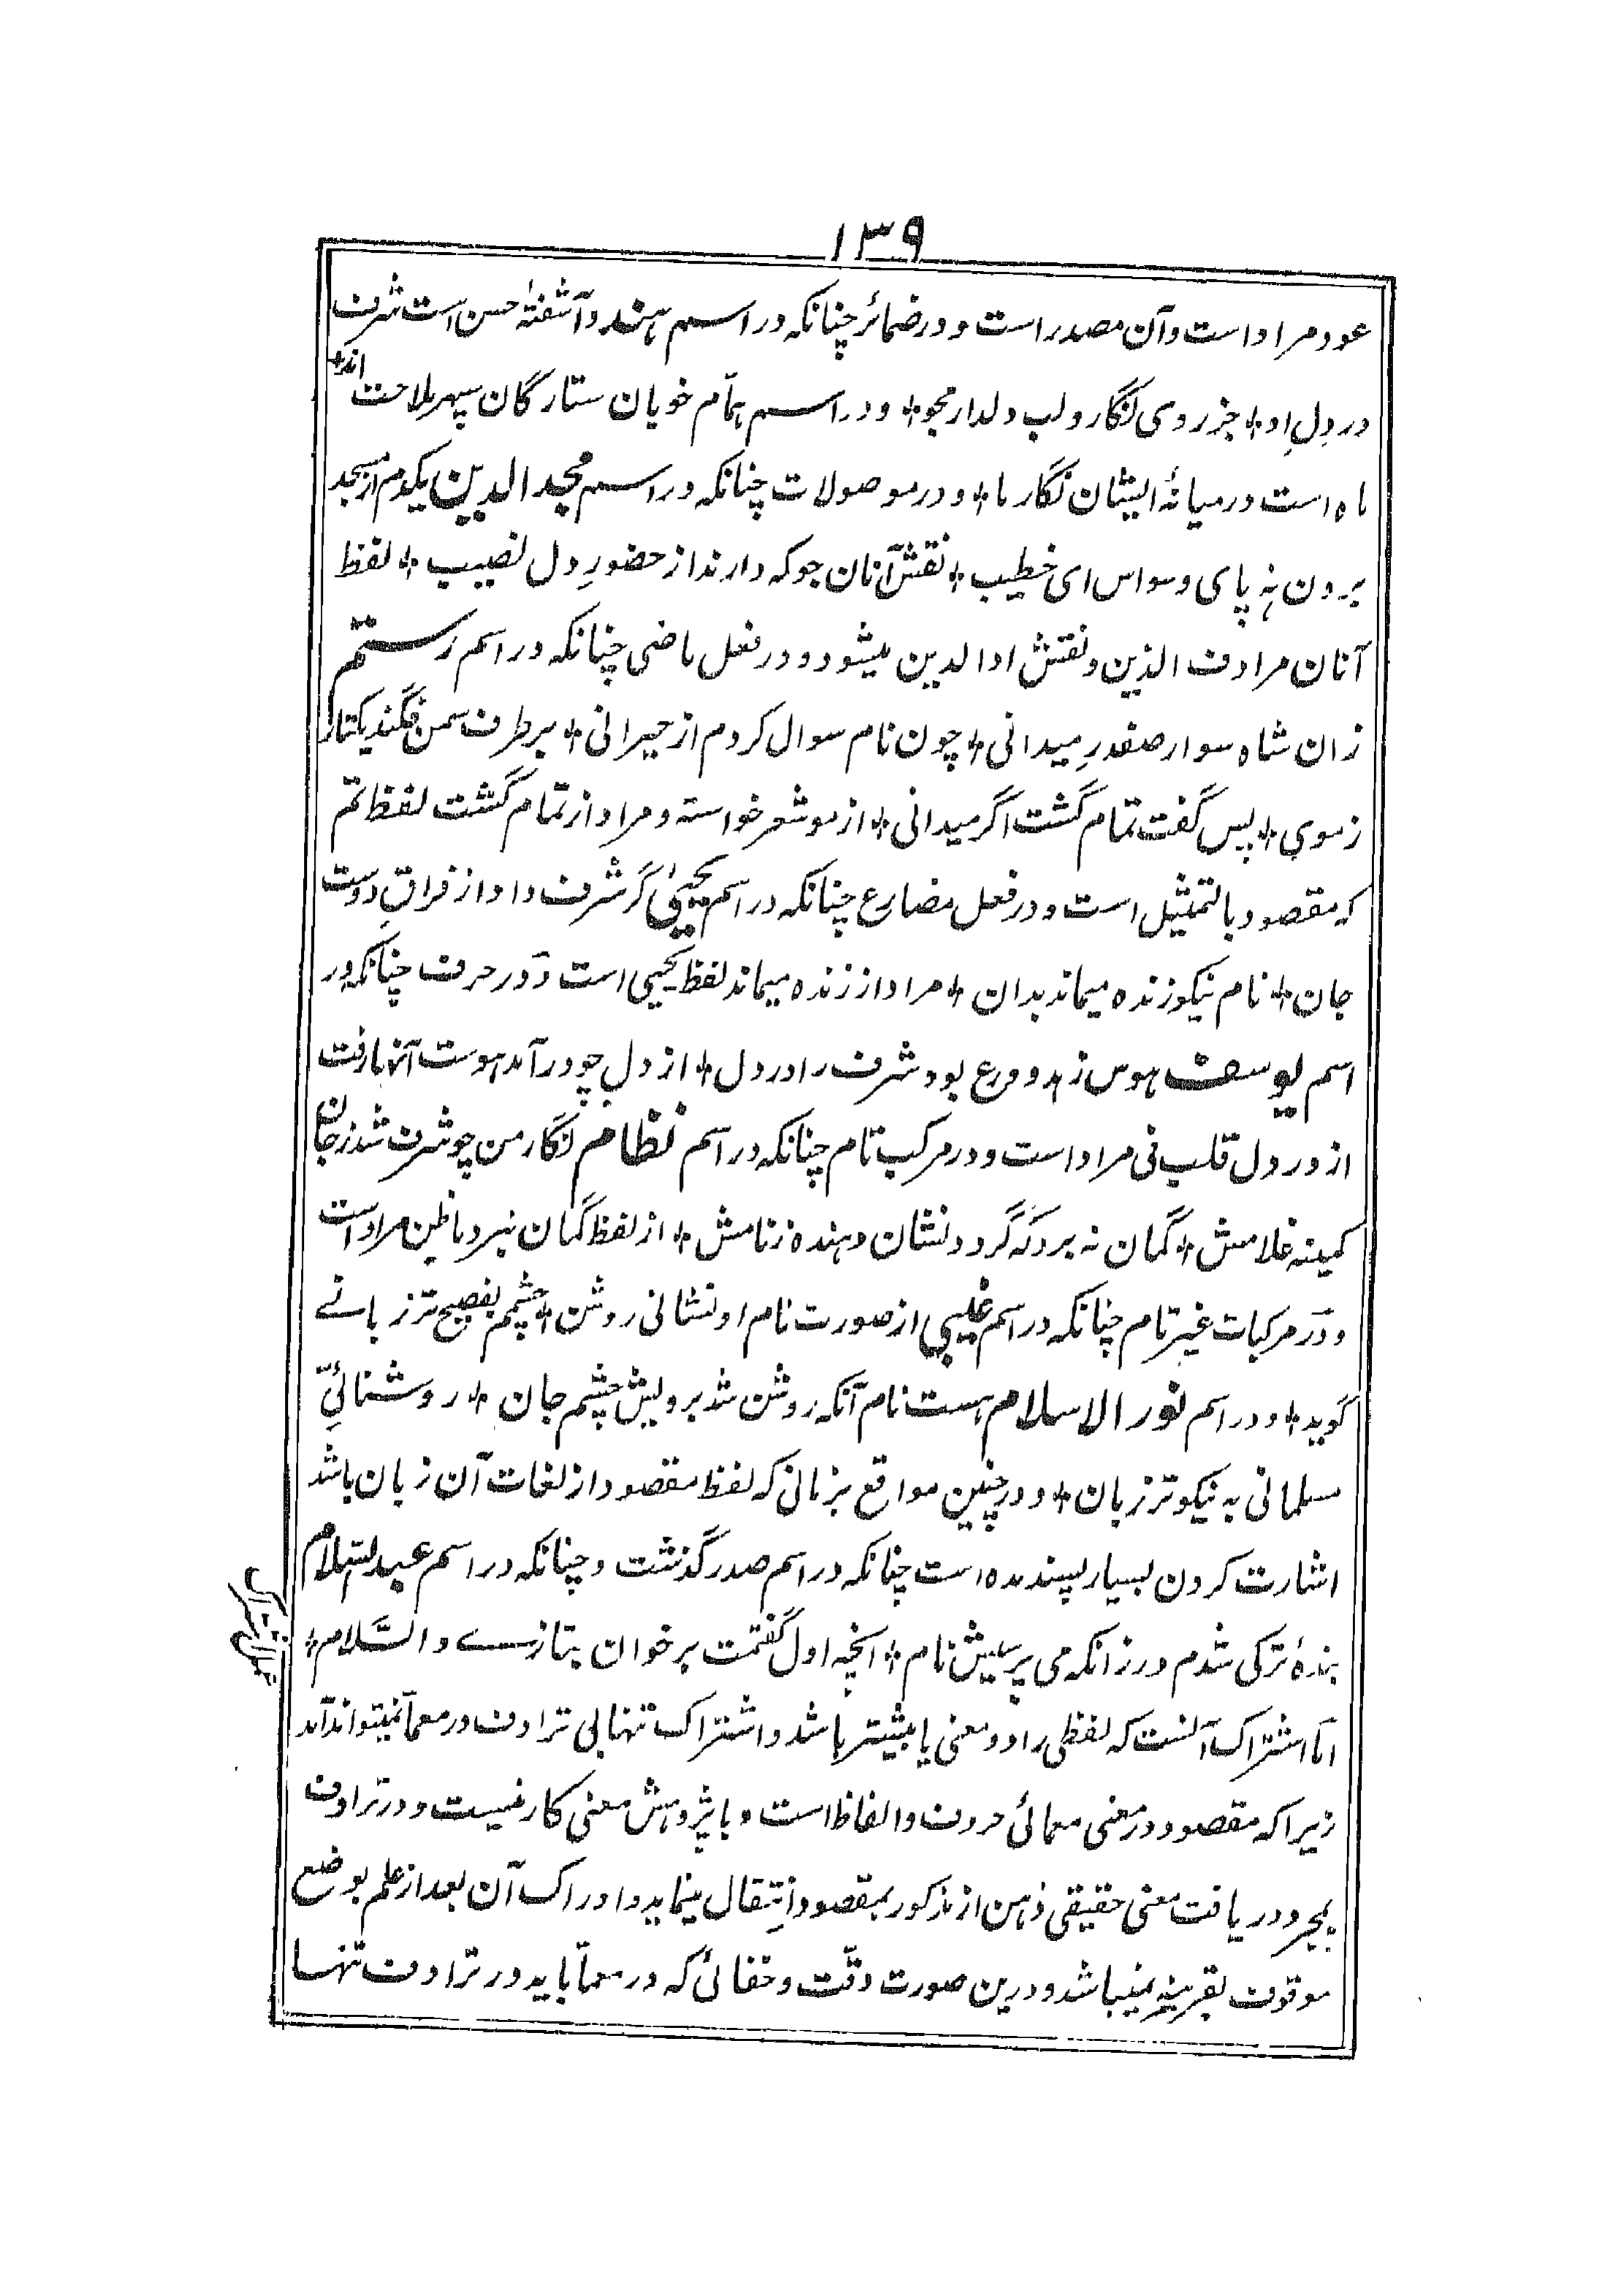 ۱۳۹
عود مراد است و آن مصدر است و در ضمائر چنانکه در اسم ہند و آشفتۂ حسن است شرف
در دلِ او ٭ جز روی نگار و لب دلدار مجو ٭ و در اسم ہمام خوبان ستارگان سپہر ملاحت اند ٭
ماہ است درمیانۂ ایشان نگار ما ٭ و در موصولات چنانکہ در اسم مجد الدین یکدم از مسجد
برون نہ پای وسواس ای خطیب ٭ نقش آنان جو کہ دارند از حضورِ دل نصیب ٭ لفظ
آنان مرادف الذین و نقش او الدین میشود و در فعل ماضی چنانکہ در اسم رستم
زان شاہ سوار صفدرِ میدانی ٭ چون نام سوال کردم از حیرانی ٭ بر طرف سمن فگند یکتار
ز موی ٭ پس گفت تمام گشت اگر میدانی ٭ از مو شعر خواستہ و مراد از تمام گشت لفظ تم
کہ مقصود بالتمثیل است و در فعل مضارع چنانکہ در اسم یحییٰ گر شرف داد از فراقِ دوست
جان ٭ نام نیکو زندہ میماند بدان ٭ مراد از زندہ میماند لفظ یحیی است و در حرف چنانکہ در
اسم یوسف ہوس زہد و ورع بود شرف را در دل ٭ از دل چو درآمد ہوست آنہا رفت
از در دل قلب فی مراد است و در مرکب تام چنانکہ در اسم نظام نگار من چو شرف شد ز جان
کمینہ غلامش ٭ گمان نہ برد کہ گردد نشان دہندہ ز نامش ٭ از لفظ گمان نبرد ما ظن مراد است
و در مرکبات غیر تام چنانکہ در اسم از صورت نام او نشانی روشن ٭ چشم بفصیح تر زبانے
گوید ٭ و در اسم نور الاسلام ہست نام آنکہ روشن شد برویش چشم جان ٭ روشنائیِ
مسلمانی بہ نیکوتر زبان ٭ و در چنین مواقع بزبانی کہ لفظ مقصود از لغات آن زبان باشد
اشارت کردن بسیار پسندیدہ است چنانکہ در اسم صدر گذشت و چنانکہ در اسم عبد السلام
بندۂ ترکی شدم ور زانکہ می پرسیش نام ٭ آنچہ اول گفتمت برخوان بتازے والسَّلام ٭
امّا اشتراک آنست کہ لفظی را دو معنی یا بیشتر باشد و اشتراک تنہا بی ترادف در معما نمیتواند آمد
زیرا کہ مقصود در معنی معمائی حروف و الفاظ است و با پژوہش معنی کار نیست و در ترادف
بمجرد دریافت معنی حقیقی ذہن از مذکور بمقصود انتقال مینماید و ادراک آن بعد از علم بوضع
موقوف بقرینہ نمیباشد و درین صورت دقّت و خفائی کہ در معمّا باید در ترادف تنہا